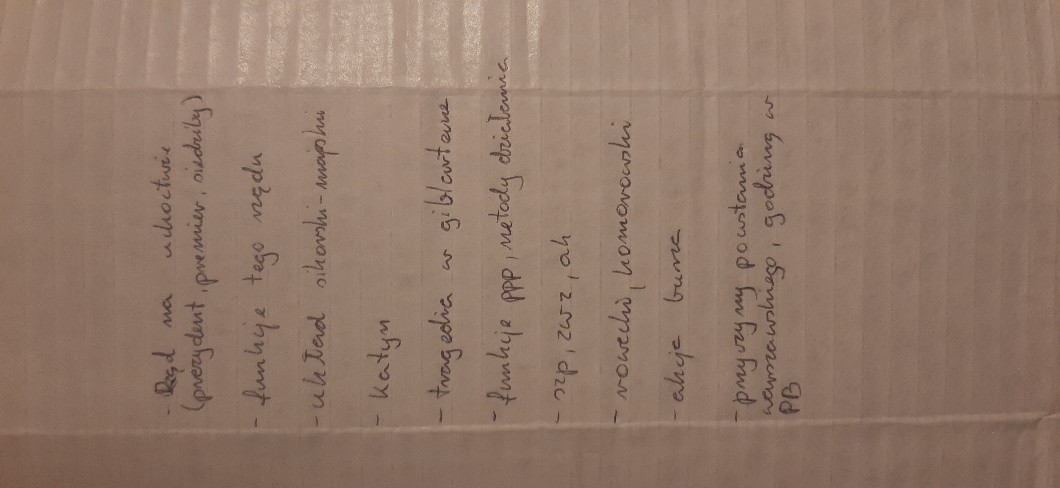 - Rząd na uchoctwie
(prezydent, premier, siedziby)
- funkcje tego rządu
- układ sikorski-majski
- Katyn
- tragedia w giblartarze
- funkcje PPP, metody działania
- szp, zwz, ak
- rowecki, komorowski
- akcje burza
- przyczyny powstania
warszawskiego, godziny w
PB